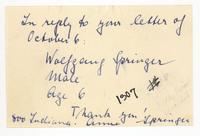 In reply to your letter of
October 6:
Wolfgang Springer
Male
Age 6
1307
Thank you!
800 Indiana. Anna Springer